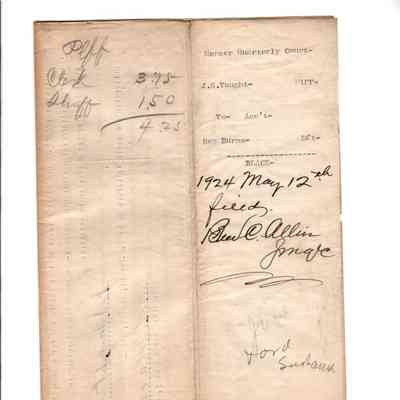 Plff
Clerk 3.75
Sheriff 1.50
4.25
Mercer Quarterly Court-
J.S.Vaught- Plff-
To- Ans't-
Ben Burns- Dft-
BLACK-
1924 May 12th
filed.
Ben C. Allin
Jmqc
Ford